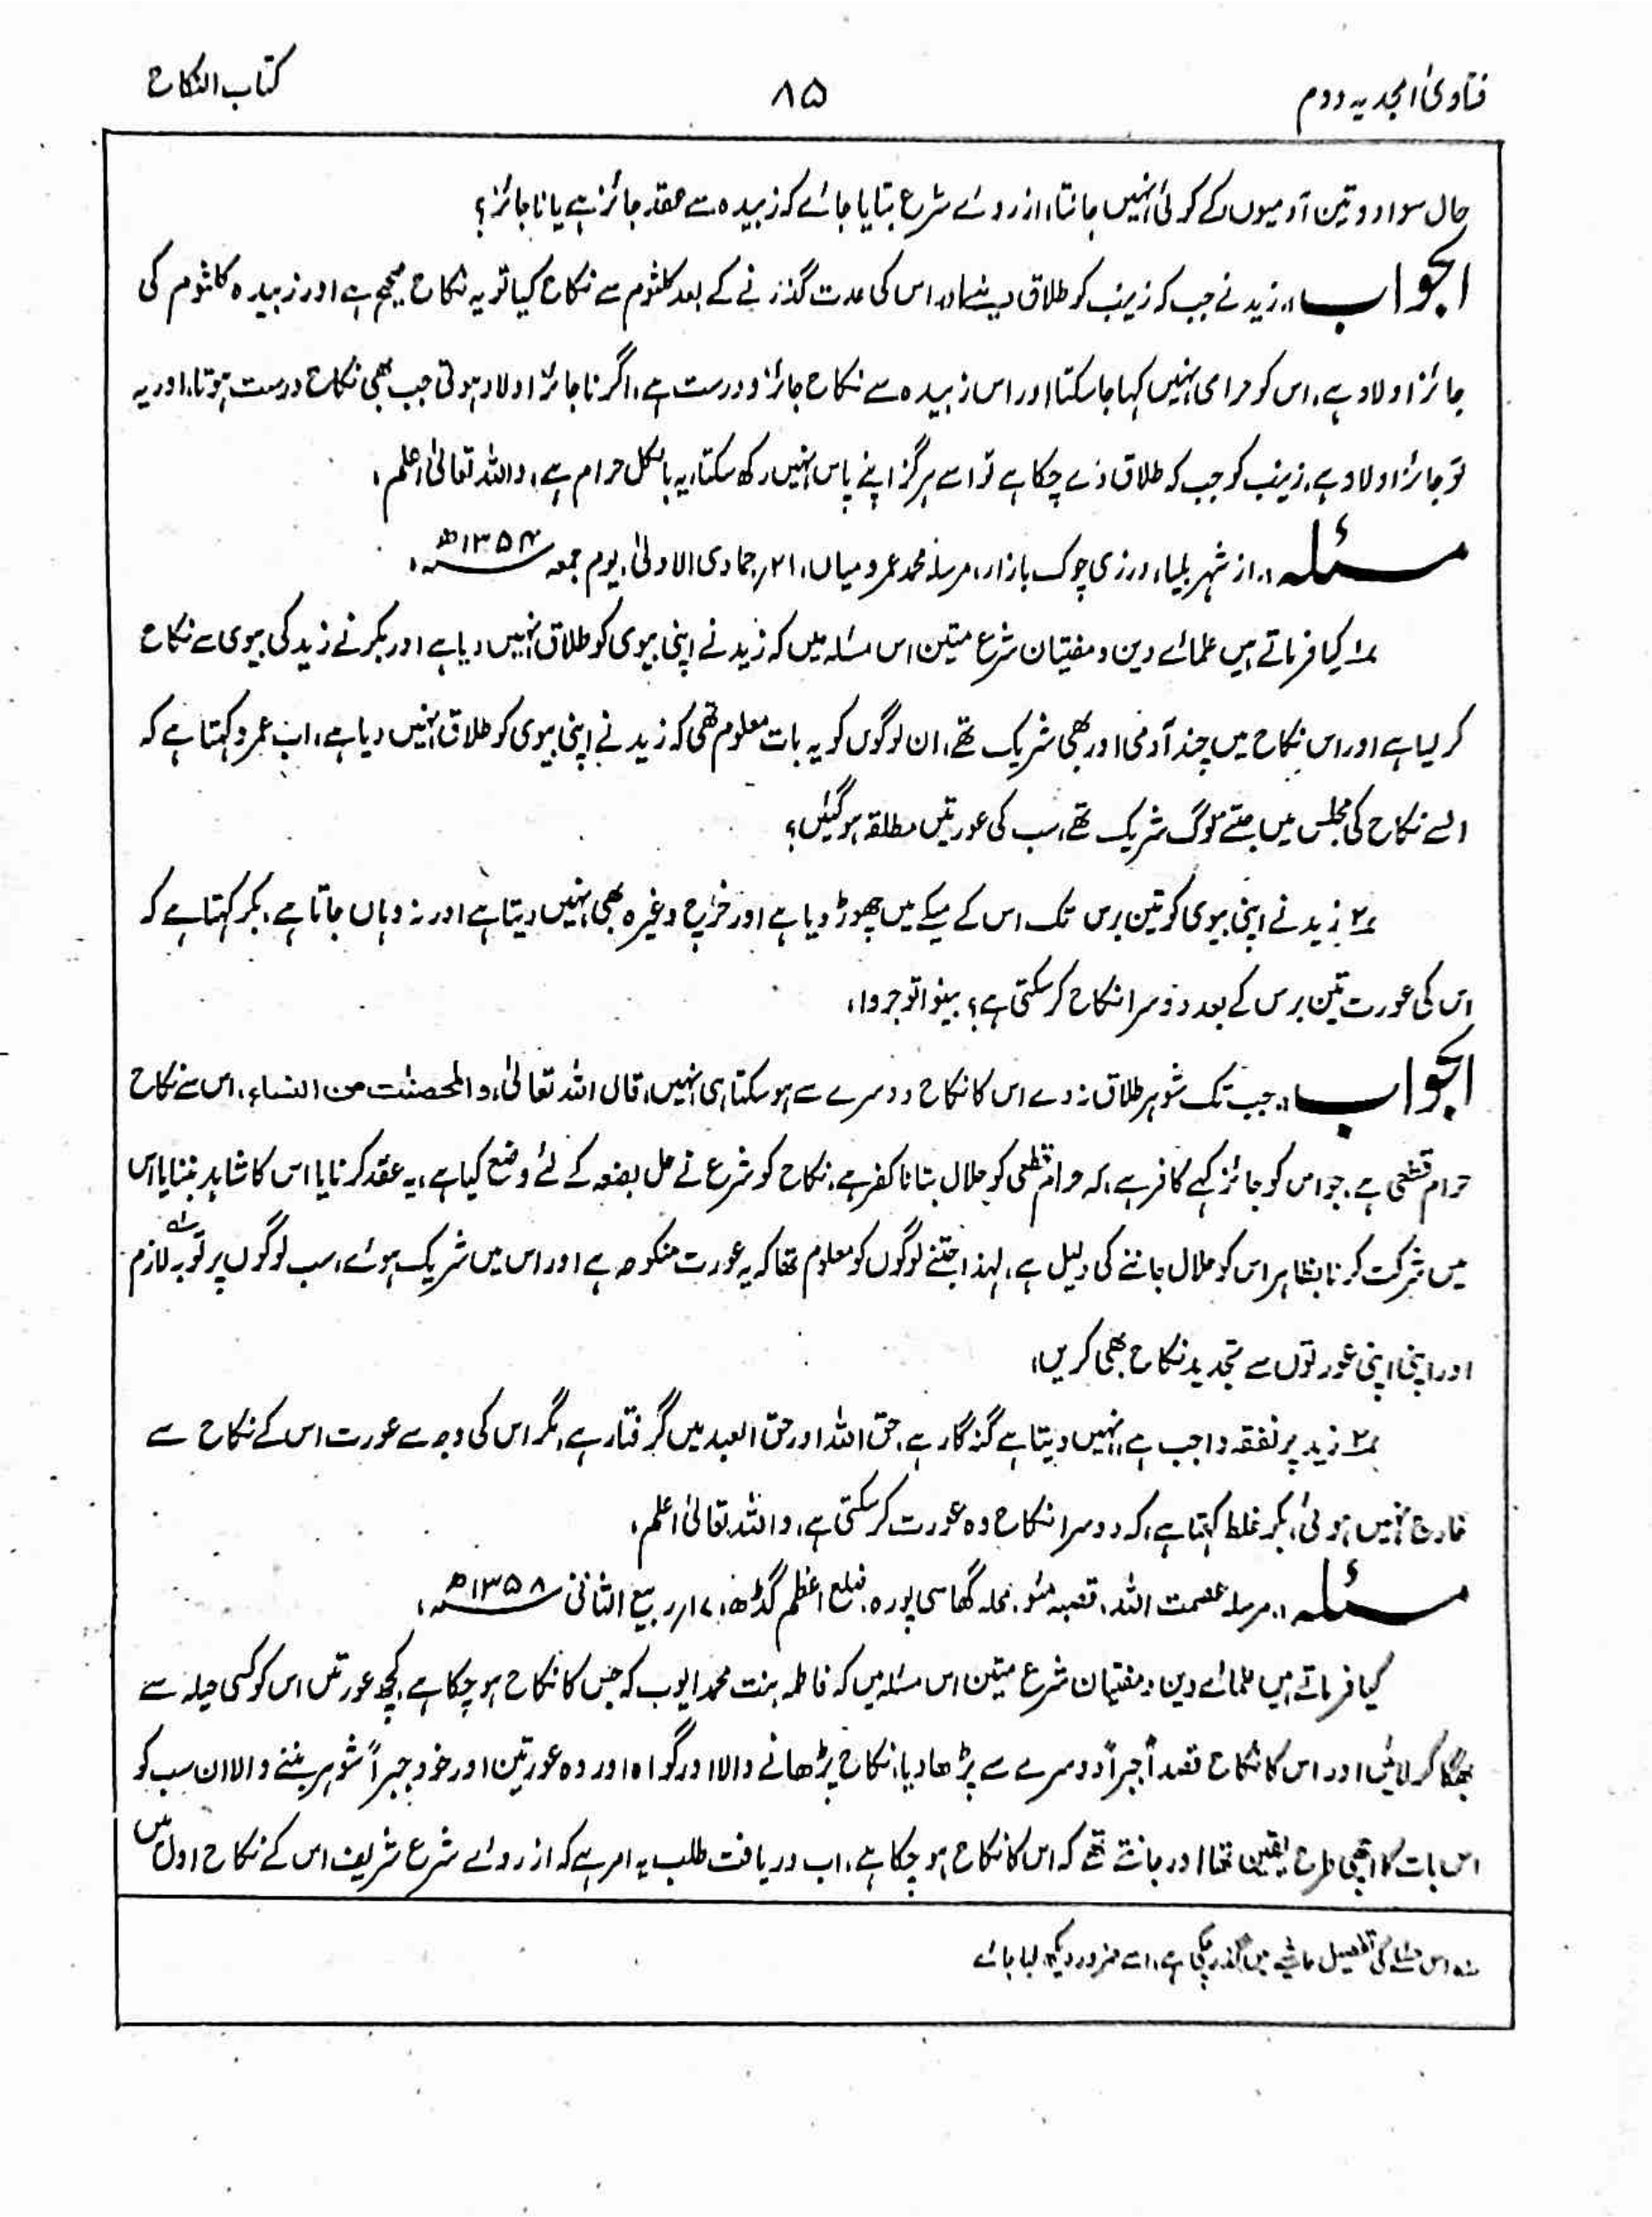 فتاویٰ امجدیہ دوم
۸۵
کتاب النکاح
حال سوا دو تین آدمیوں کے کوئی نہیں جانتا، از روئے شرع بتایا جائے کہ زبیدہ سے عقد جائز ہے یا ناجائز؟
الجواب :۔ زید نے جب کہ زینب کو طلاق دینے اور اس کی عدت گذرنے کے بعد کلثوم سے نکاح کیا تو یہ نکاح صحیح ہے اور زبیدہ کلثوم کی
جائز اولاد ہے، اس کو حرامی نہیں کہا جا سکتا اور اس زبیدہ سے نکاح جائز و درست ہے، اگر ناجائز اولاد ہوتی جب بھی نکاح درست ہوتا، اور یہ
تو جائز اولاد ہے، زینب کو جب کہ طلاق دے چکا ہے تو اسے ہرگز اپنے پاس نہیں رکھ سکتا، یہ بالکل حرام ہے، واللہ تعالیٰ اعلم،
مسئلہ :۔ از شہر بلیا، درزی چوک بازار، مرسلہ محمد عمرو میاں، ۲۱؍ جمادی الاولیٰ، یوم جمعہ ۱۳۵۴ھ،
۱؎ کیا فرماتے ہیں علمائے دین و مفتیان شرع متین اس مسئلہ میں کہ زید نے اپنی بیوی کو طلاق نہیں دیا ہے اور بکر نے زید کی بیوی سے نکاح
کر لیا ہے اور اس نکاح میں چند آدمی اور بھی شریک تھے، ان لوگوں کو یہ بات معلوم تھی کہ زید نے اپنی بیوی کو طلاق نہیں دیا ہے، اب عمرو کہتا ہے کہ
ایسے نکاح کی مجلس میں جتنے لوگ شریک تھے، سب کی عورتیں مطلقہ ہو گئیں؟
۲؎ زید نے اپنی بیوی کو تین برس تک اس کے میکے میں چھوڑ دیا ہے اور خرچ وغیرہ بھی نہیں دیتا ہے اور نہ وہاں جاتا ہے، بکر کہتا ہے کہ
اس کی عورت تین برس کے بعد دوسرا نکاح کر سکتی ہے؟ بینوا توجروا،
الجواب :۔ جب تک شوہر طلاق نہ دے اس کا نکاح دوسرے سے ہو سکتا ہی نہیں، قال اللہ تعالیٰ، والمحصنٰت من النساء، اس سے نکاح
حرام قطعی ہے، جو اس کو جائز کہے کافر ہے، کہ حرام قطعی کو حلال بتانا کفر ہے، نکاح کو شرع نے حل بضعہ کے لئے وضع کیا ہے، یہ عقد کرنا یا اس کا شاہد بننا یا اس
میں شرکت کرنا بظاہر اس کو حلال جاننے کی دلیل ہے، لہٰذا جتنے لوگوں کو معلوم تھا کہ یہ عورت منکوحہ ہے اور اس میں شریک ہوئے، سب لوگوں پر توبہ لازم
اور اپنی اپنی عورتوں سے تجدید نکاح بھی کریں،
۲؎ زید پر نفقہ واجب ہے، نہیں دیتا ہے گنہگار ہے، حق اللہ اور حق العبد میں گرفتار ہے، مگر اس کی وجہ سے عورت اس کے نکاح سے
خارج نہیں ہوئی، بکر غلط کہتا ہے، کہ دوسرا نکاح وہ عورت کر سکتی ہے، واللہ تعالیٰ اعلم،
مسئلہ :۔ مرسلہ عصمت اللہ، قصبہ مئو، محلہ گھاسی پورہ، ضلع اعظم گڑھ، ۱۷؍ ربیع الثانی ۱۳۵۸ھ،
کیا فرماتے ہیں علمائے دین و مفتیان شرع متین اس مسئلہ میں کہ فاطمہ بنت محمد ایوب کہ جس کا نکاح ہو چکا ہے، کچھ عورتیں اس کو کسی حیلہ سے
بھگا کر لائیں اور اس کا نکاح قصداً جبراً دوسرے سے پڑھا دیا، نکاح پڑھانے والا اور گواہ اور وہ عورتیں اور خود جبراً شوہر بننے والا ان سب کو
اس بات کا اچھی طرح یقین تھا اور جانتے تھے کہ اس کا نکاح ہو چکا ہے، اب دریافت طلب یہ امر ہے کہ از روئے شرع شریف اس کے نکاح اول میں
اس مسئلے کی تفصیل حاشیے میں گذر چکی ہے، اسے ضرور دیکھ لیا جائے